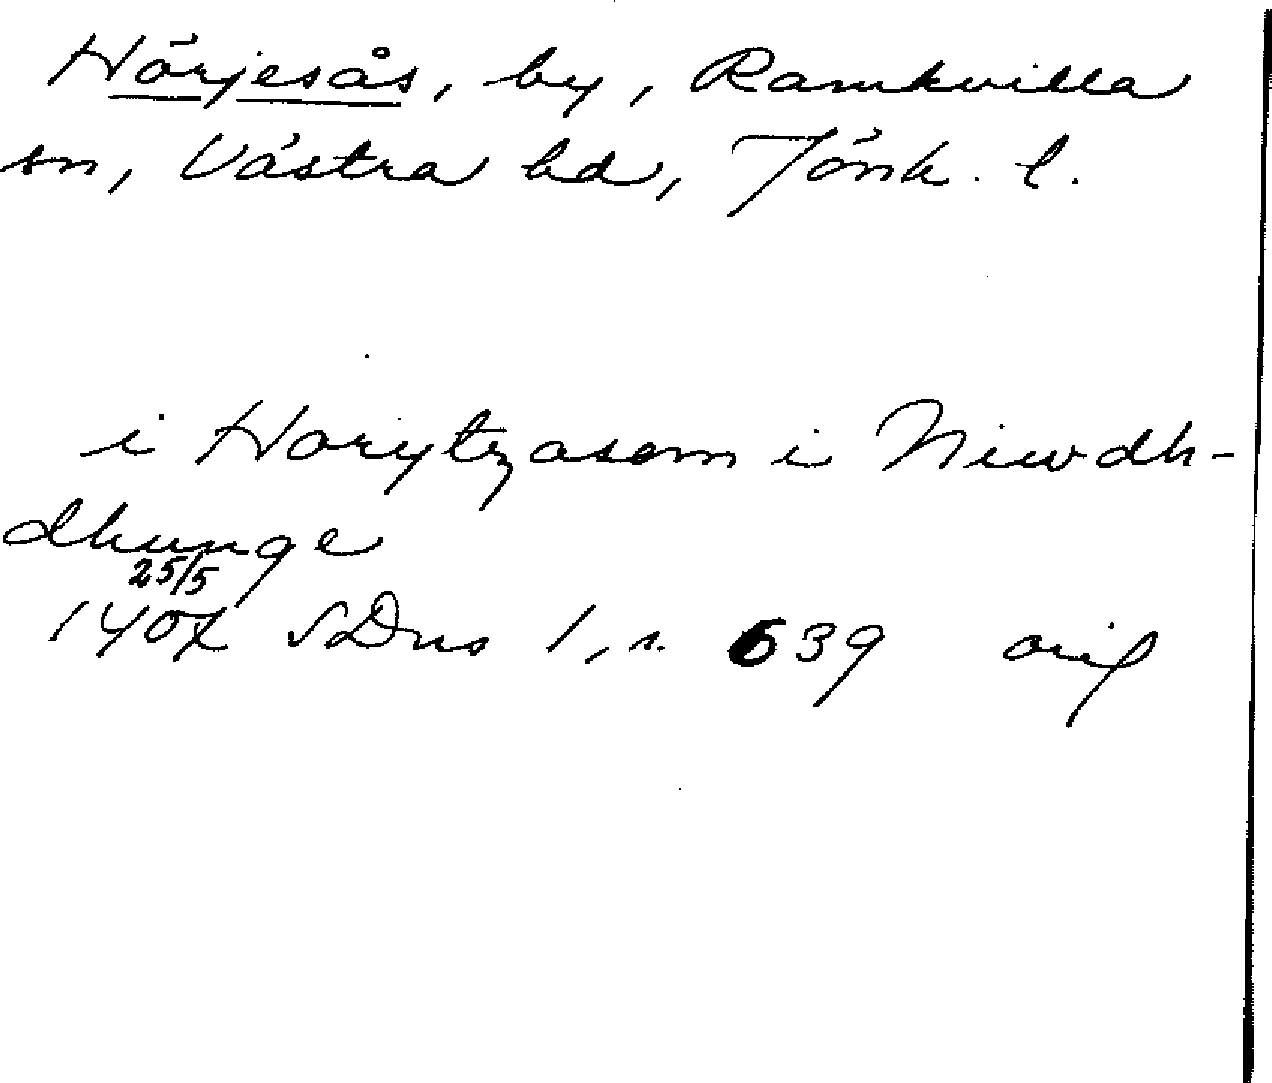 Hörjesås, by, Ramkvilla
sn, Västra hd, Jönk. l.
i Horytzasom i Niwdh-
dhunge
25/5
1407 SDns 1, s. 639 orig